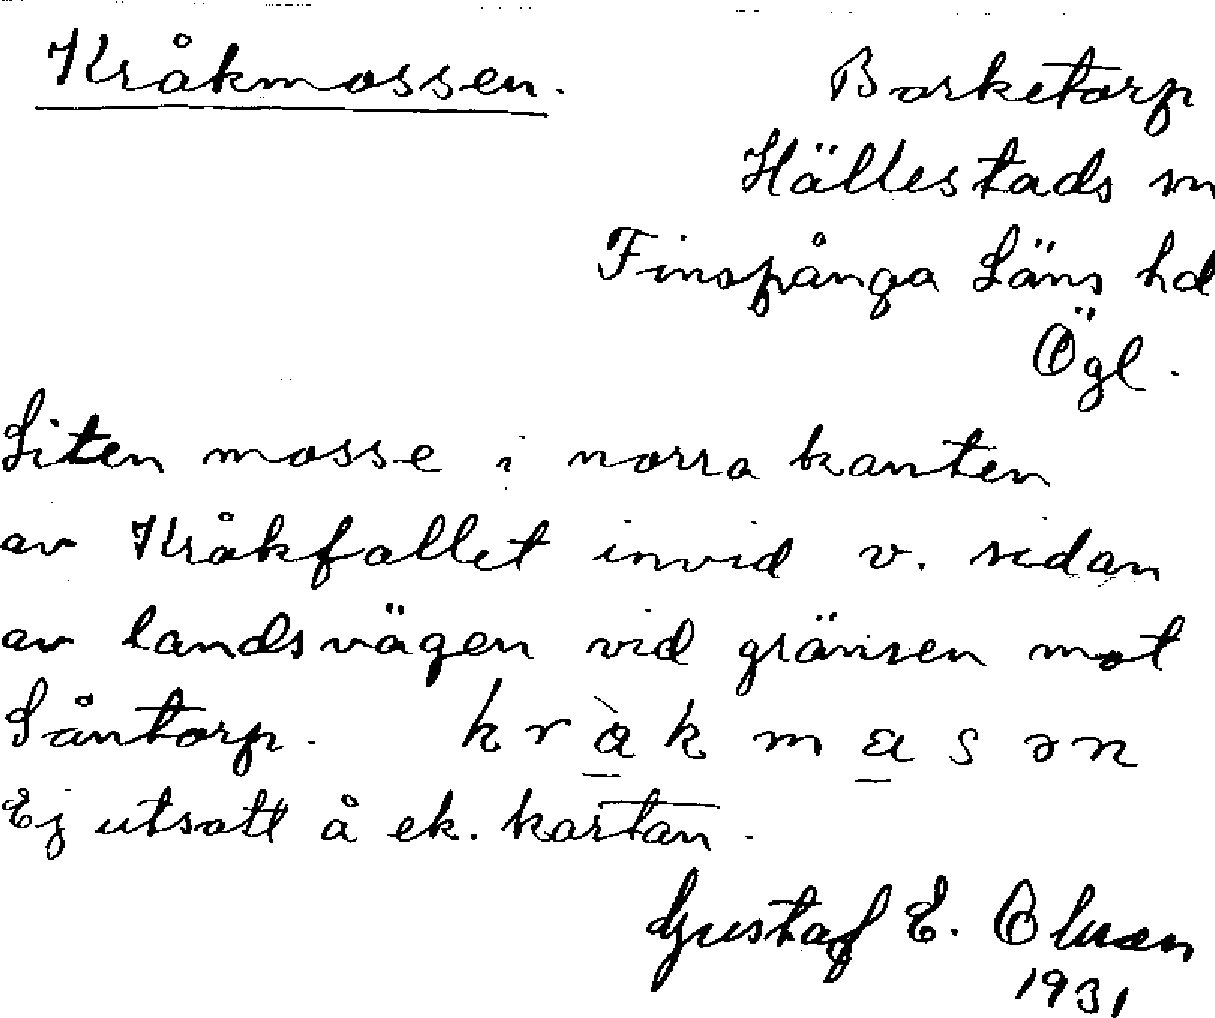 Kråkmossen.
Borketorp
Hällestads sn
Finspånga Läns hd
Ögl.
Liten mosse i norra kanten
av Kråkfallet invid v. sidan
av landsvägen vid gränsen mot
Såntorp. kràkmasən
Ej utsatt å ek. kartan.
Gustaf E. Olsson
1931